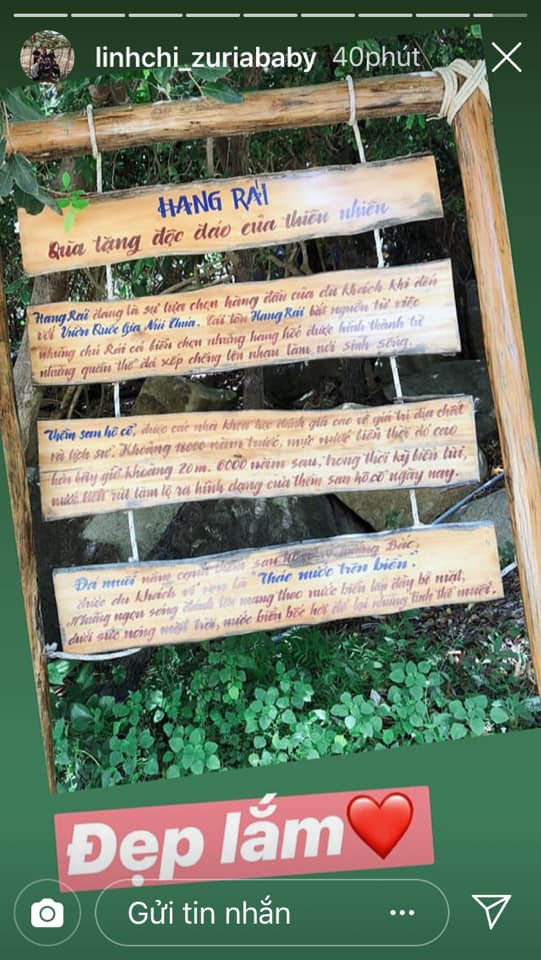 linhchi_zuriababy 40phút
HANG RÁI
Quà tặng độc đáo của thiên nhiên
Hang Rái đang là sự lựa chọn hàng đầu của du khách khi đến
với Vườn Quốc Gia Núi Chúa. Cái tên Hang Rái bắt nguồn từ việc
những chú Rái cá biển chọn những hang hốc được hình thành từ
những quần thể đá xếp chồng lên nhau làm nơi sinh sống.
Thềm san hô cổ, được các nhà khoa học đánh giá cao về giá trị địa chất
và lịch sử. Khoảng 18000 năm trước, mực nước biển thời đó cao
hơn bây giờ khoảng 20m. 6000 năm sau, trong thời kỳ biển lùi,
nước biển rút làm lộ ra hình dạng của thềm san hô cổ ngày nay.
Đá muối nằm cạnh thềm san hô cổ về hướng Bắc,
được du khách ví von là "Thác nước trên biển".
Những ngọn sóng đánh lên mang theo nước biển lấp đầy bề mặt,
dưới sức nóng mặt trời, nước biển bốc hơi để lại những tinh thể muối.
Đẹp lắm
Gửi tin nhắn